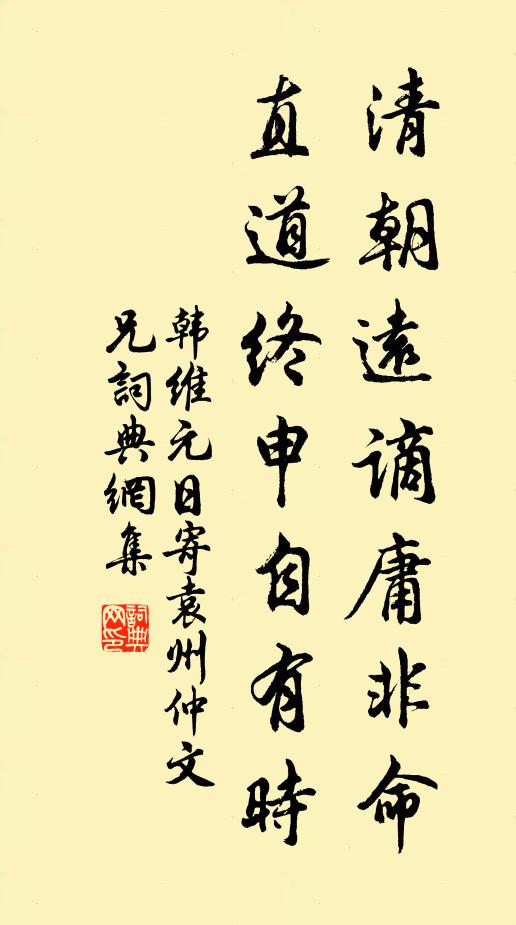 清朝遠謫庸非命
直道終申自有時
韩維元日寄袁州仲文
兄詞典網集
詞典網印